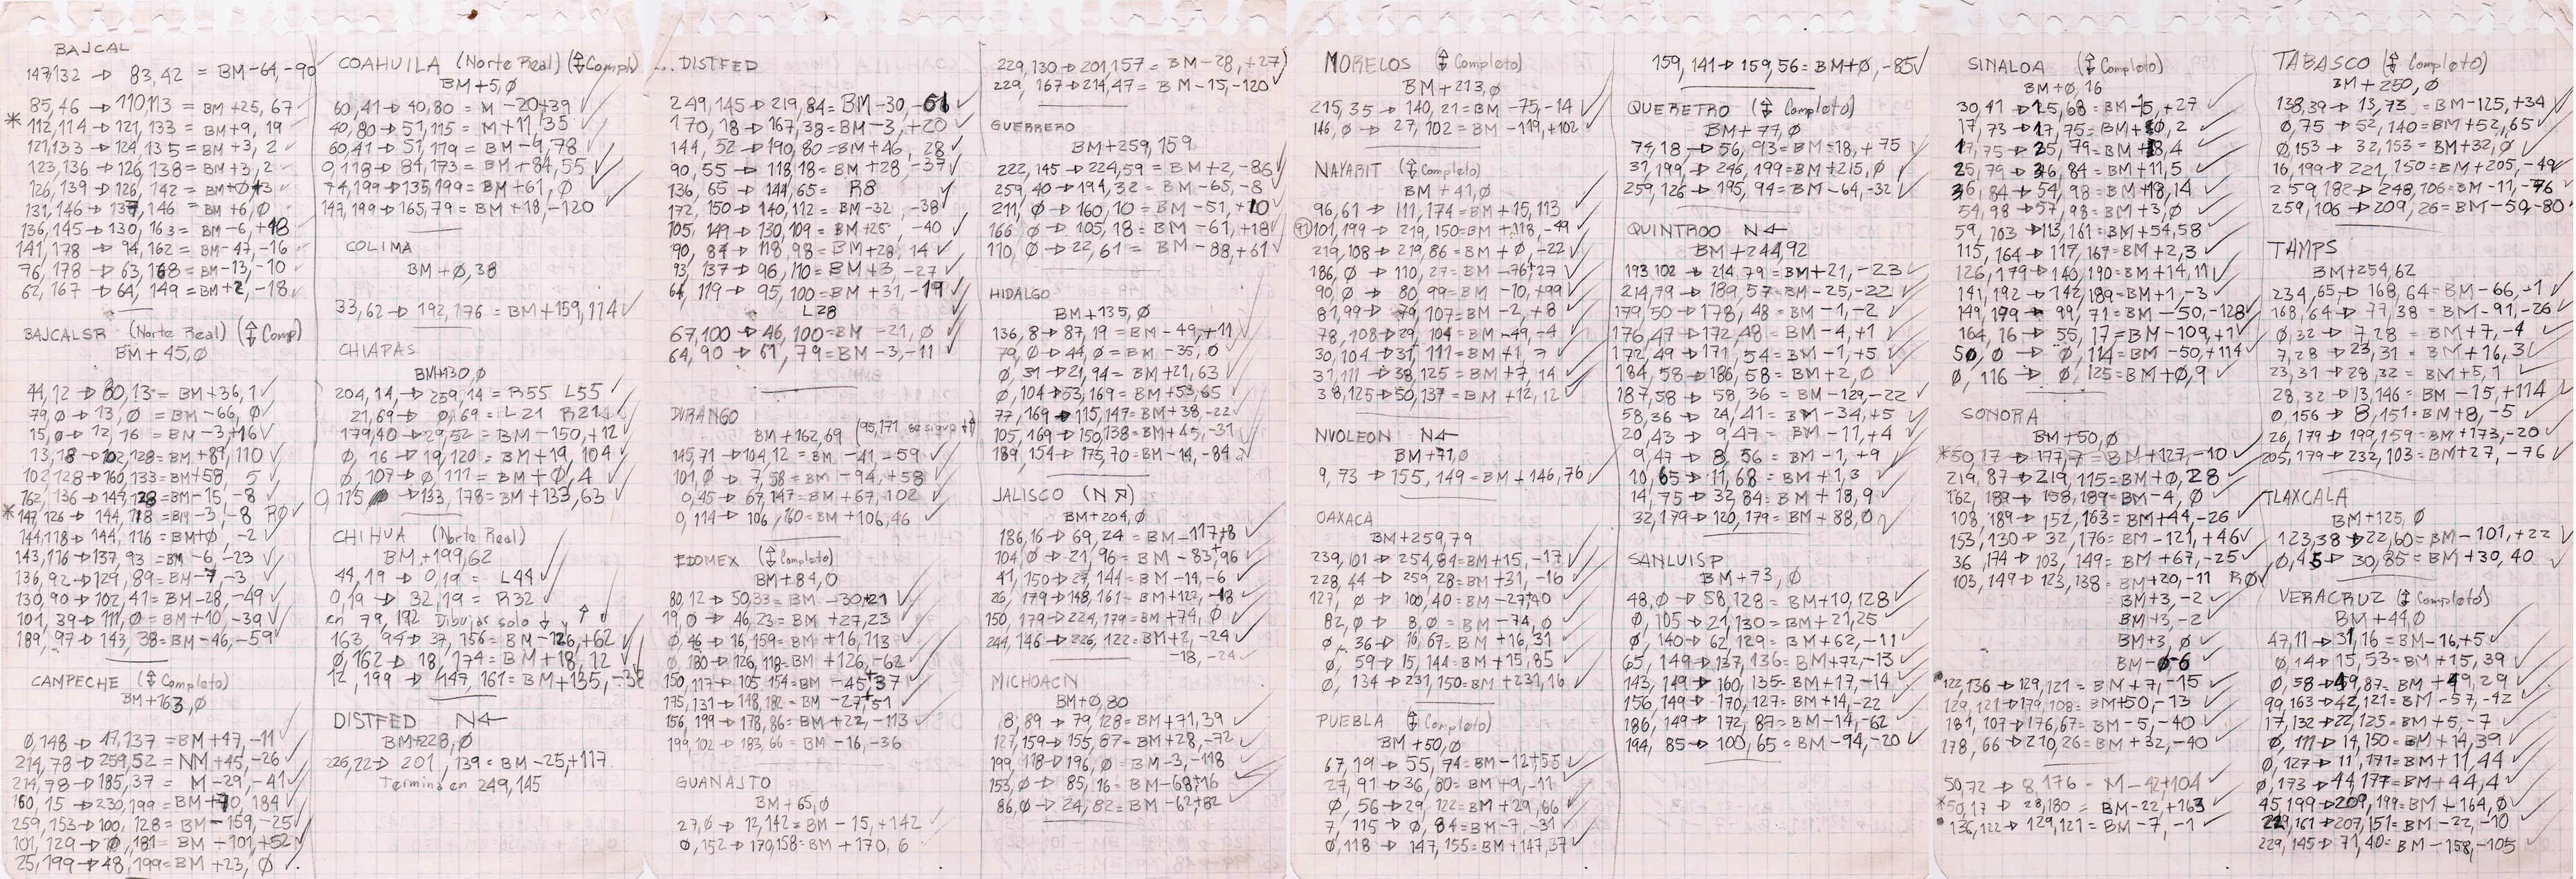 BAJCAL
147,132 → 83,42 = BM-64,-90
85,46 → 110,113 = BM+25,67
* 112,114 → 121,133 = BM+9,19
121,133 → 124,135 = BM+3,2 ✓
123,136 → 126,138 = BM+3,2 ✓
126,139 → 126,142 = BM+Ø+3
131,146 → 137,146 = BM+6,0
136,145 → 130,163 = BM-6,+18
141,178 → 94,162 = BM-47,-16
76,178 → 63,168 = BM-13,-10
62,167 → 64,149 = BM+2,-18
BAJCALSR (Norte Real) (⇕Comp)
BM+45,0
44,12 → 80,13 = BM+36,1 ✓
79,0 → 13,0 = BM-66,0 ✓
15,0 → 12,16 = BM-3,+16 ✓
13,18 → 102,128 = BM+89,110 ✓
102,128 → 160,133 = BM+58,5 ✓
162,136 → 147,128 = BM-15,-8 ✓
* 147,126 → 144,118 = BM-3,-8 RØ ✓
144,118 → 144,116 = BM+Ø,-2 ✓
143,116 → 137,93 = BM-6,-23 ✓
136,92 → 129,89 = BM-7,-3 ✓
130,90 → 102,41 = BM-28,-49 ✓
101,39 → 111,0 = BM+10,-39 ✓
189,97 → 143,38 = BM-46,-59 ✓
CAMPECHE (⇕Completo)
BM+163,0
0,148 → 47,137 = BM+47,-11 ✓
214,78 → 259,52 = NM+45,-26 ✓
214,78 → 185,37 = M-29,-41 ✓
160,15 → 230,199 = BM+70,184 ✓
259,153 → 100,128 = BM-159,-25 ✓
101,129 → 0,181 = BM-101,+52 ✓
25,199 → 48,199 = BM+23,0 ✓
COAHUILA (Norte Real) (⇕Compl)
BM+5,0
60,41 → 40,80 = M-20+39 ✓
40,80 → 51,115 = M+11,35 ✓
60,41 → 51,119 = BM-9,78 ✓
0,118 → 84,173 = BM+84,55 ✓
74,199 → 135,199 = BM+61,0 ✓
147,199 → 165,79 = BM+18,-120 ✓
COLIMA
BM+0,38
33,62 → 192,176 = BM+159,114 ✓
CHIAPAS
BM+130,0
204,14 → 259,14 = R55 L55 ✓
21,69 → 0,69 = L21 R21 ✓
179,40 → 29,52 = BM-150,+12 ✓
0,16 → 19,120 = BM+19,104 ✓
0,107 → 0,111 = BM+0,4 ✓
0,115 → 133,178 = BM+133,63 ✓
CHIHUA (Norte Real)
BM+199,62
44,19 → 0,19 = L44 ✓
0,19 → 32,19 = R32 ✓
en 79,192 Dibujar solo ↓ y ↑
163,94 → 37,156 = BM-126,+62 ✓
0,162 → 18,174 = BM+18,12 ✓
12,199 → 147,161 = BM+135,-38 ✓
DISTFED N←
BM+228,0
226,22 → 201,139 = BM-25,+117
Termina en 249,145
... DISTFED
249,145 → 219,84 = BM-30,-61 ✓
170,18 → 167,38 = BM-3,+20 ✓
144,52 → 190,80 = BM+46,28 ✓
90,55 → 118,18 = BM+28,-37 ✓
136,65 → 144,65 = R8 ✓
172,150 → 140,112 = BM-32,-38 ✓
105,149 → 130,109 = BM+25,-40 ✓
90,84 → 118,98 = BM+28,14 ✓
93,137 → 96,110 = BM+3,-27 ✓
64,119 → 95,100 = BM+31,-19 ✓
L28
67,100 → 46,100 = BM-21,0 ✓
64,90 → 61,79 = BM-3,-11 ✓
DURANGO
BM+162,69 (95,171 se sigue ↑)
145,71 → 104,12 = BM-41-59 ✓
101,0 → 7,58 = BM-94,+58 ✓
0,45 → 67,147 = BM+67,102 ✓
0,114 → 106,160 = BM+106,46 ✓
EDOMEX (⇕Completo)
BM+84,0
80,12 → 50,33 = BM-30+21 ✓
19,0 → 46,23 = BM+27,23 ✓
0,46 → 16,159 = BM+16,113 ✓
0,180 → 126,118 = BM+126,-62 ✓
150,117 → 105,154 = BM-45+37 ✓
175,131 → 148,182 = BM-27+51 ✓
156,199 → 178,86 = BM+22,-113 ✓
199,102 → 183,66 = BM-16,-36
GUANAJTO
BM+65,0
27,0 → 12,142 = BM-15,+142 ✓
0,152 → 170,158 = BM+170,6 ✓
229,130 → 201,157 = BM-28,+27)
229,167 → 214,47 = BM-15,-120 ✓
GUERRERO
BM+259,159
222,145 → 224,59 = BM+2,-86 ✓
259,40 → 194,32 = BM-65,-8 ✓
211,0 → 160,10 = BM-51,+10 ✓
166,0 → 105,18 = BM-61,+18 ✓
110,0 → 22,61 = BM-88,+61 ✓
HIDALGO
BM+135,0
136,8 → 87,19 = BM-49,+11 ✓
79,0 → 44,0 = BM-35,0 ✓
0,31 → 21,94 = BM+21,63 ✓
0,104 → 53,169 = BM+53,65 ✓
77,169 → 115,147 = BM+38,-22 ✓
105,169 → 150,138 = BM+45,-31 ✓
189,154 → 175,70 = BM-14,-84 ✓
JALISCO (N↗)
BM+204,0
186,16 → 69,24 = BM-117+8 ✓
104,0 → 21,96 = BM-83+96 ✓
41,150 → 27,144 = BM-14,-6 ✓
26,179 → 148,161 = BM+122,-18 ✓
150,179 → 224,179 = BM+74,0 ✓
244,146 → 226,122 = BM+2,-24 ✓
-18,-24 ✓
MICHOACN
BM+0,80
8,89 → 79,128 = BM+71,39 ✓
127,159 → 155,87 = BM+28,-72 ✓
199,118 → 196,0 = BM-3,-118 ✓
153,0 → 85,16 = BM-68+16 ✓
86,0 → 24,82 = BM-62+82 ✓
MORELOS (⇕Completo)
BM+213,0
215,35 → 140,21 = BM-75,-14 ✓
146,0 → 27,102 = BM-119,+102 ✓
NAYARIT (⇕Completo)
BM+41,0
96,61 → 111,174 = BM+15,113 ✓
101,199 → 219,150 = BM+118,-49 ✓
219,108 → 219,86 = BM+0,-22 ✓
186,0 → 110,27 = BM-76+27 ✓
90,0 → 80,99 = BM-10,+99 ✓
81,99 → 79,107 = BM-2,+8 ✓
78,108 → 29,104 = BM-49,-4 ✓
30,104 → 31,111 = BM+1,7 ✓
31,111 → 38,125 = BM+7,14 ✓
38,125 → 50,137 = BM+12,12 ✓
NVOLEON N←
BM+71,0
9,73 → 155,149 = BM+146,76 ✓
OAXACA
BM+259,79
239,101 → 254,84 = BM+15,-17 ✓
228,44 → 259,28 = BM+31,-16 ✓
127,0 → 100,40 = BM-27+40 ✓
82,0 → 8,0 = BM-74,0 ✓
0,36 → 16,67 = BM+16,31 ✓
0,59 → 15,144 = BM+15,85 ✓
0,134 → 231,150 = BM+231,16 ✓
PUEBLA (⇕Completo)
BM+50,0
67,19 → 55,74 = BM-12+55 ✓
27,91 → 36,80 = BM+9,-11 ✓
0,56 → 29,122 = BM+29,66 ✓
7,115 → 0,84 = BM-7,-31 ✓
0,118 → 147,155 = BM+147,37 ✓
159,141 → 159,56 = BM+0,-85 ✓
QUERETRO (⇕Completo)
BM+77,0
74,18 → 56,93 = BM-18,+75 ✓
31,199 → 246,199 = BM+215,0 ✓
259,126 → 195,94 = BM-64,-32 ✓
QUINTROO N←
BM+244,92
193,102 → 214,79 = BM+21,-23 ✓
214,79 → 189,57 = BM-25,-22 ✓
179,50 → 178,48 = BM-1,-2 ✓
176,47 → 172,48 = BM-4,+1 ✓
172,49 → 171,54 = BM-1,+5 ✓
184,58 → 186,58 = BM+2,0 ✓
187,58 → 58,36 = BM-129,-22 ✓
58,36 → 24,41 = BM-34,+5 ✓
20,43 → 9,47 = BM-11,+4 ✓
9,47 → 8,56 = BM-1,+9 ✓
10,65 → 11,68 = BM+1,3 ✓
14,75 → 32,84 = BM+18,9 ✓
32,179 → 120,179 = BM+88,0 ✓
SANLUISP
BM+73,0
48,0 → 58,128 = BM+10,128 ✓
0,105 → 21,130 = BM+21,25 ✓
0,140 → 62,129 = BM+62,-11 ✓
65,149 → 137,136 = BM+72,-13 ✓
143,149 → 160,135 = BM+17,-14 ✓
156,149 → 170,127 = BM+14,-22 ✓
186,149 → 172,87 = BM-14,-62 ✓
194,85 → 100,65 = BM-94,-20 ✓
SINALOA (⇕Completo)
BM+0,16
30,41 → 25,68 = BM-5,+27 ✓
17,73 → 17,75 = BM+0,2 ✓
17,75 → 25,79 = BM+8,4 ✓
25,79 → 36,84 = BM+11,5 ✓
36,84 → 54,98 = BM+18,14 ✓
54,98 → 57,98 = BM+3,0 ✓
59,103 → 113,161 = BM+54,58 ✓
115,164 → 117,167 = BM+2,3 ✓
126,179 → 140,190 = BM+14,11 ✓
141,192 → 142,189 = BM+1,-3 ✓
149,199 → 99,71 = BM-50,-128 ✓
164,16 → 55,17 = BM-109,+1 ✓
50,0 → 0,114 = BM-50,+114 ✓
0,116 → 0,125 = BM+0,9 ✓
SONORA
BM+50,0
*50,17 → 177,7 = BM+127,-10 ✓
219,87 → 219,115 = BM+0,28 ✓
162,189 → 158,189 = BM-4,0 ✓
108,189 → 152,163 = BM+44,-26 ✓
153,130 → 32,176 = BM-121,+46 ✓
36,174 → 103,149 = BM+67,-25 ✓
103,149 → 123,138 = BM+20,-11 RØ ✓
BM+3,-2 ✓
BM+3,-2 ✓
BM+3,0 ✓
BM-0-6 ✓
•122,136 → 129,121 = BM+7,-15 ✓
129,121 → 179,108 = BM+50,-13 ✓
181,107 → 176,67 = BM-5,-40 ✓
178,66 → 210,26 = BM+32,-40 ✓
50,72 → 8,176 = M-42+104 ✓
*50,17 → 28,180 = BM-22,+163 ✓
•136,122 → 129,121 = BM-7,-1 ✓
TABASCO (⇕Completo)
BM+250,0
138,39 → 13,73 = BM-125,+34 ✓
0,75 → 52,140 = BM+52,65 ✓
0,153 → 32,153 = BM+32,0 ✓
16,199 → 221,150 = BM+205,-49 ✓
259,182 → 248,106 = BM-11,-76 ✓
259,106 → 209,26 = BM-50,-80 ✓
TAMPS
BM+254,62
234,65 → 168,64 = BM-66,-1 ✓
168,64 → 77,38 = BM-91,-26 ✓
0,32 → 7,28 = BM+7,-4 ✓
7,28 → 23,31 = BM+16,3 ✓
23,31 → 28,32 = BM+5,1 ✓
28,32 → 13,146 = BM-15,+114 ✓
0,156 → 8,151 = BM+8,-5 ✓
26,179 → 199,159 = BM+173,-20 ✓
205,179 → 232,103 = BM+27,-76 ✓
TLAXCALA
BM+125,0
123,38 → 22,60 = BM-101,+22 ✓
0,45 → 30,85 = BM+30,40 ✓
VERACRUZ (⇕Completo)
BM+44,0
47,11 → 31,16 = BM-16+5 ✓
0,14 → 15,53 = BM+15,39 ✓
0,58 → 49,87 = BM+49,29 ✓
99,163 → 42,121 = BM-57,-42 ✓
17,132 → 22,125 = BM+5,-7 ✓
0,111 → 14,150 = BM+14,39 ✓
0,127 → 11,171 = BM+11,44 ✓
0,173 → 44,177 = BM+44,4 ✓
45,199 → 209,199 = BM+164,0 ✓
229,161 → 207,151 = BM-22,-10 ✓
229,145 → 71,40 = BM-158,-105 ✓